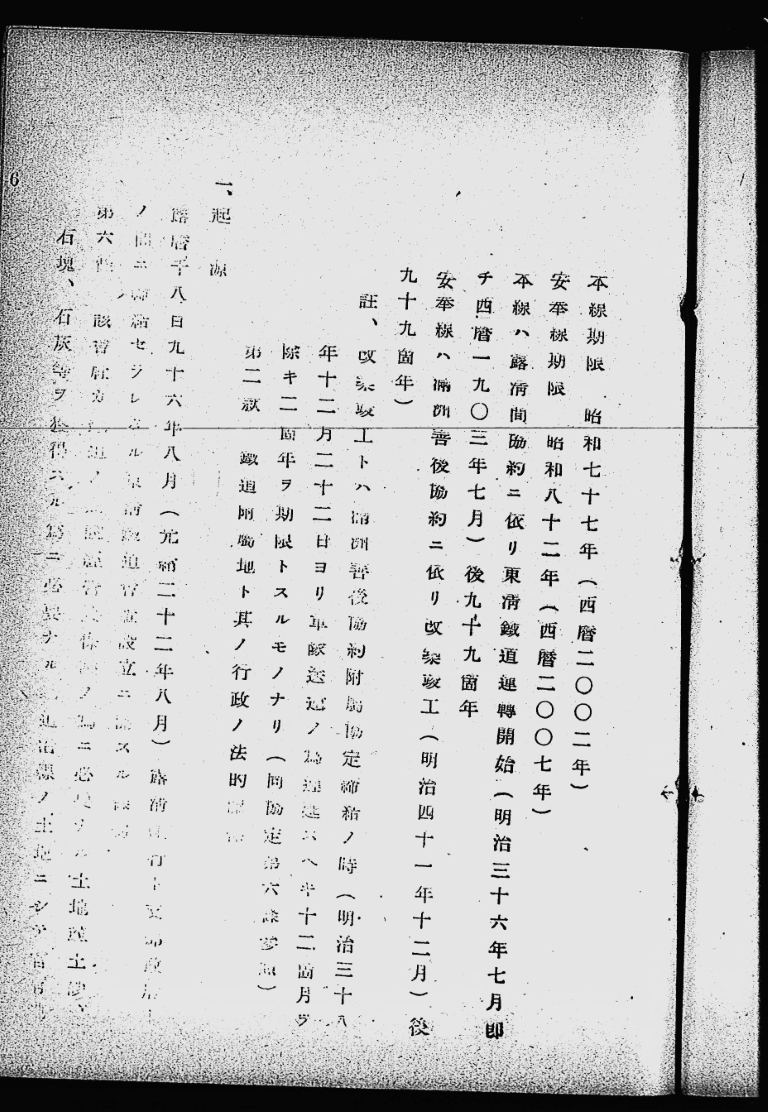 本線期限 昭和七十七年(西暦二〇〇二年)
安奉線期限 昭和八十二年(西暦二〇〇七年)
本線ハ露清間協約ニ依リ東清鐵道運轉開始(明治三十六年七月即
チ西暦一九〇三年七月)後九十九箇年
安奉線ハ滿洲善後協約ニ依リ改築竣工(明治四十一年十二月)後
九十九箇年)
註、改築竣工トハ滿洲善後協約附屬協定締結ノ時(明治三十八
年十二月二十二日ヨリ軍隊送還ノ爲遲延スヘキ十二箇月ヲ
除キ二箇年ヲ期限トスルモノナリ(同協定第六條參照)
第二款 鐵道附屬地ト其ノ行政ノ法的
一、起源
露暦千八日九十六年八月(光緒二十二年八月)露清銀行ト支那政府
ノ間ニ締結セラレタル東清鐵道會社設立ニ關スル
第六條 該會社カ鐵道ノ ノ爲ニ必要ナル土地竝土砂、
石塊、石灰等ヲ獲得スル爲ニ必要ナル 土地ニシテ